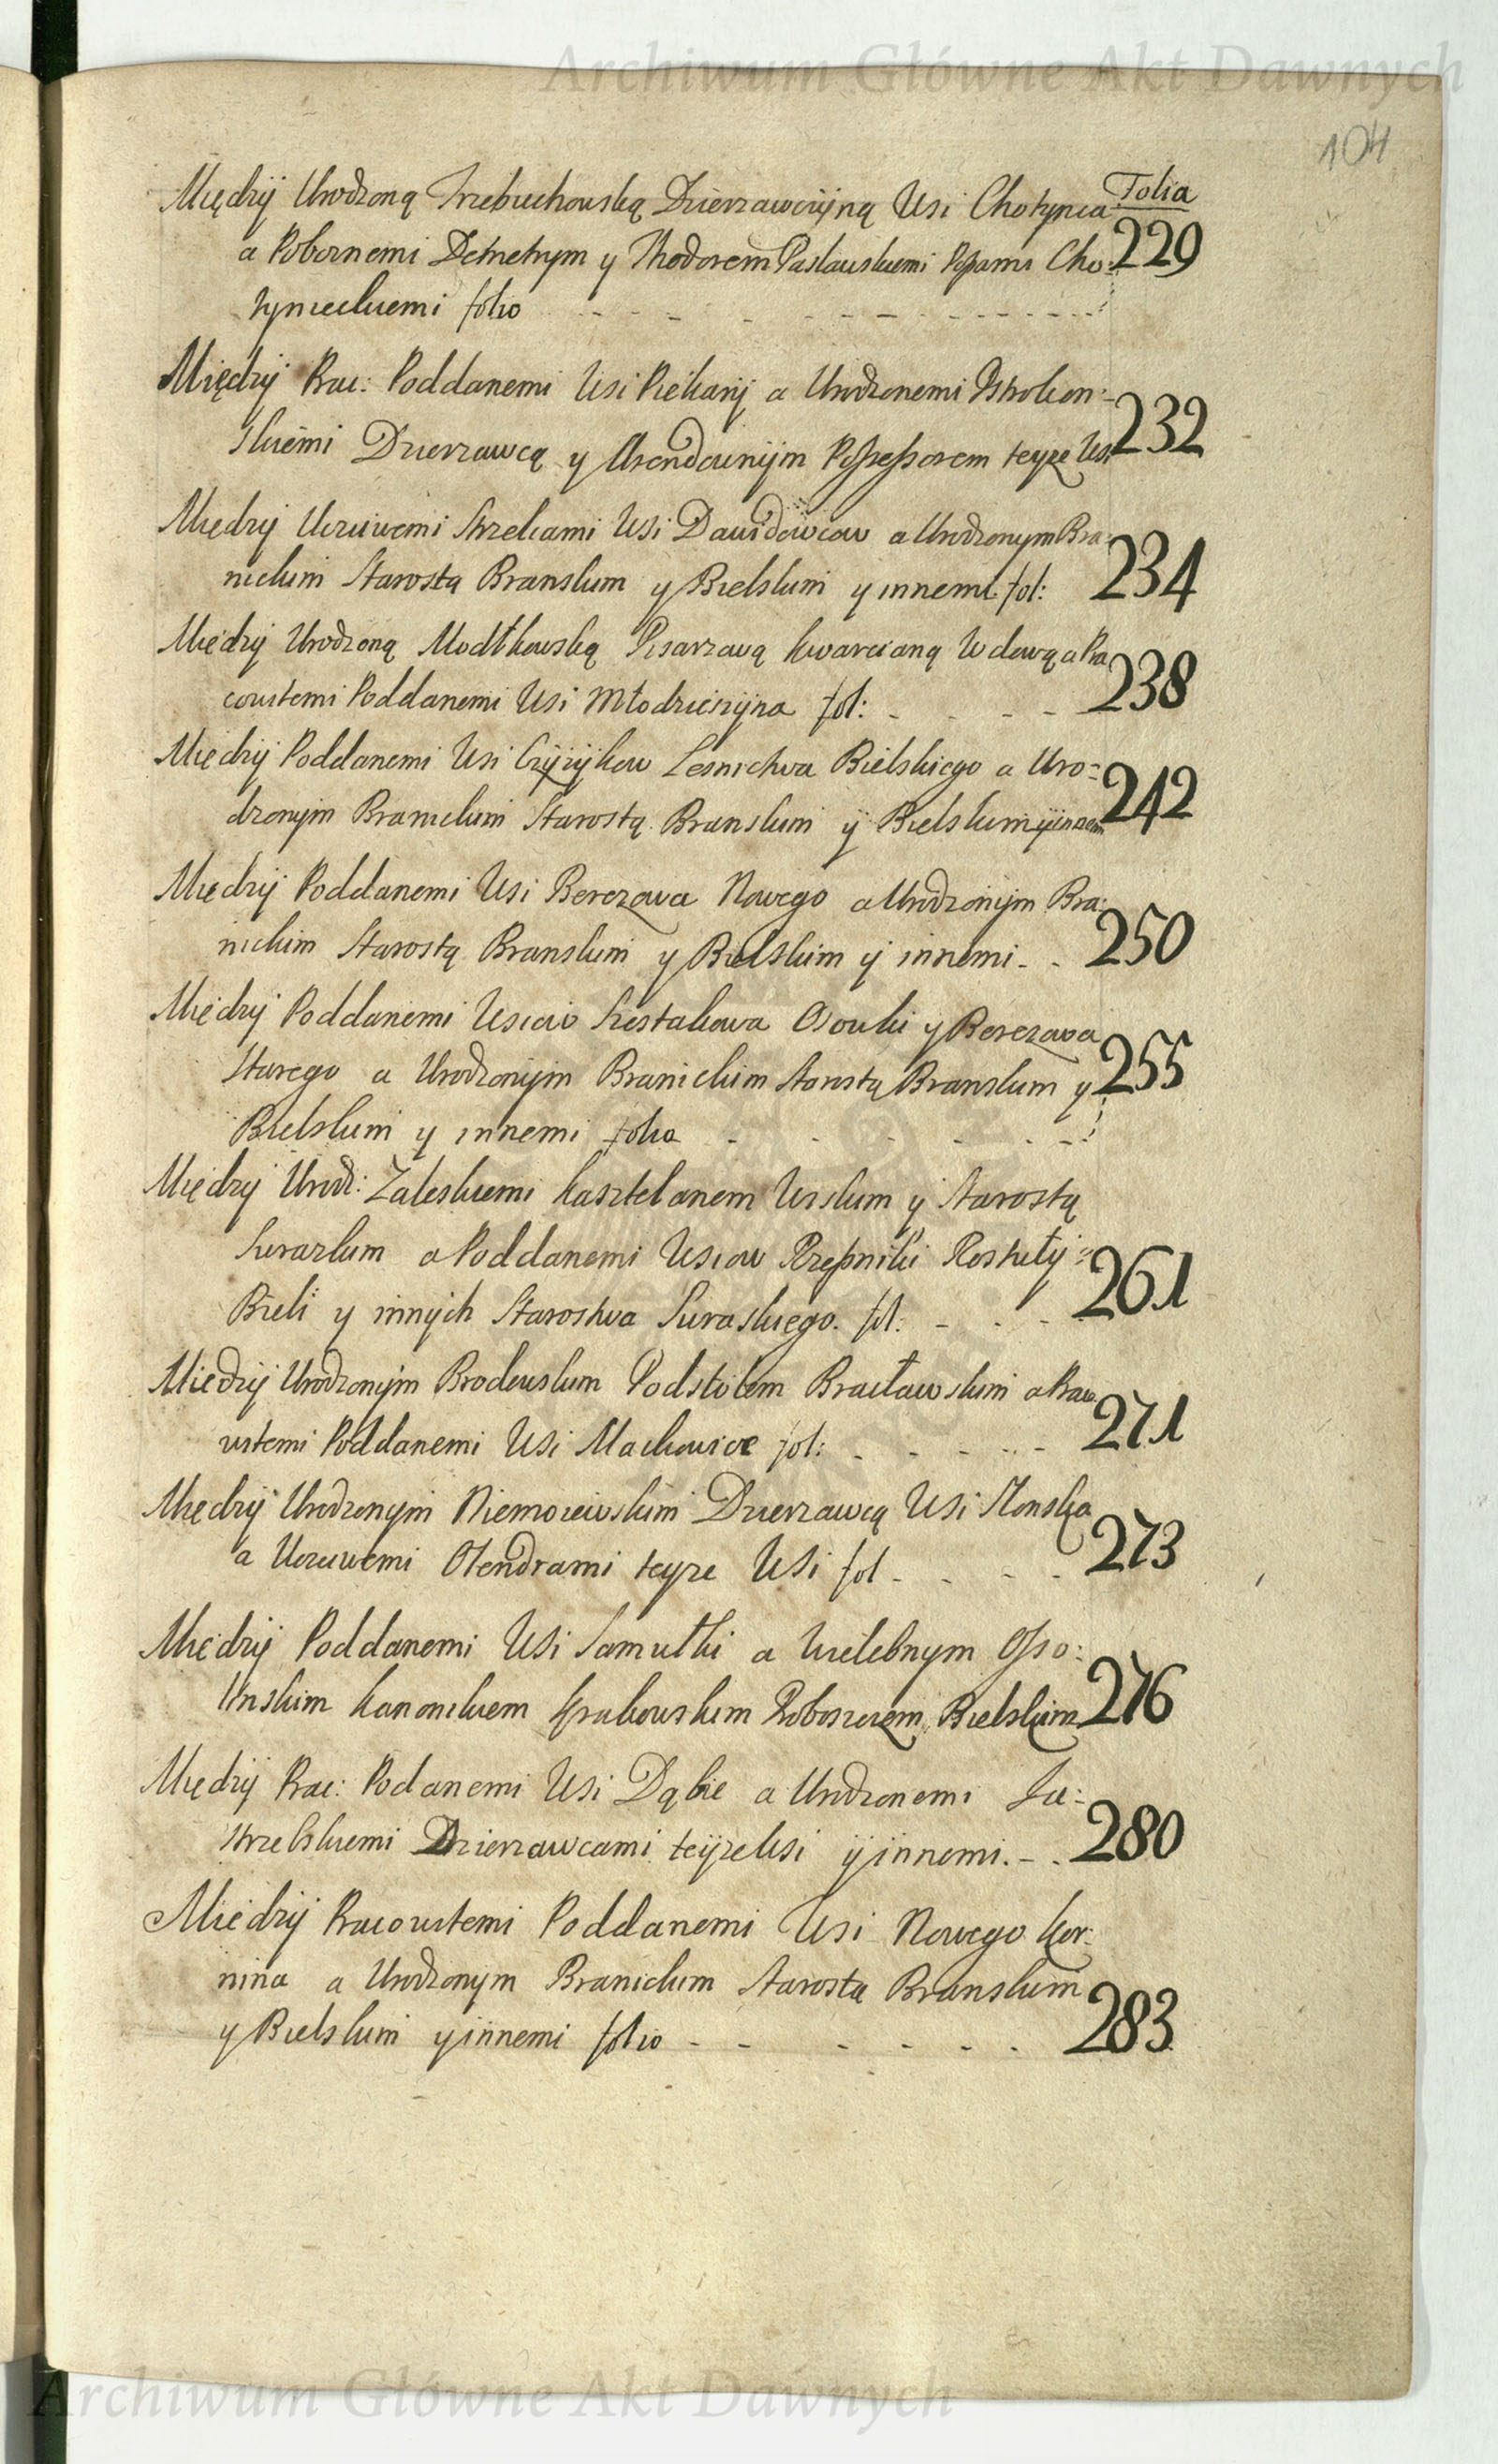 Archiwum Główne Akt Dawnych
104
Folia
Między Urodzoną Trzebuchowską Dzierzawczyną Wsi Chotynca
a Pobornemi Demetrym y Thodorem Pasławskiemi Popami Cho: 229
tynieckiemi folio
Między Prac: Poddanemi Wsi Piekary a Urodzonemi
skiemi Dzierzawcą y Arendownym Possessorem teyze Wsi 232
Między Uczciwemi Strzelcami Wsi Dawidowicow a Urodzonym Bra:
nickim Starostą Branskim y Bielskim y innemi fol: 234
Między Urodzoną Modłkowską Pisarzową kwarcianą Wdową a Pra
cowitemi Poddanemi Wsi Młodzieszyna fol: 238
Między Poddanemi Wsi Czyżykow Lesnictwa Bielskiego a Uro=
dzonym Branickim Starostą Branskim ÿ Bielskim y innem 242
Między Poddanemi Wsi Berezowa Nowego a Urodzonym Bra:
nickim Starostą Branskim y Bielskim y innemi 250
Między Poddanemi Wsiow Szostakowa Osowki y Berezowa
Starego a Urodzonym Branickim Starostą Branskim y 255
Bielskim y innemi folio
Między Urodz: Zaleskiemi Kasztelanem Wiskim y Starostą
Surazkim a Poddanemi Wsiow Rzepniki Koszuty = 261
Bieli y innych Starostwa Suraskiego. fol:
Między Urodzonym Brodowskim Podstolem Bracławskim a Praco
witemi Poddanemi Wsi Mackowice fol: 271
Między Urodzonym Niemoiewskim Dzierzawcą Wsi Słonska
a Uczciwemi Olendrami teyze Wsi fol 273
Między Poddanemi Wsi Samułki a Wielebnym Osso:
linskim Kanonikiem Krakowskim Proboszczem Bielskim 276
Między Prac: Podanemi Wsi Dąbie a Urodzonemi Ja:
strzebskiemi Dzierzawcami teyze Wsi ÿ innemi. 280
Między Pracowitemi Poddanemi Wsi Nowego Kor:
nina a Urodzonym Branickim Starostą Branskim 283
y Bielskim y innemi folio
Archiwum Główne Akt Dawnych